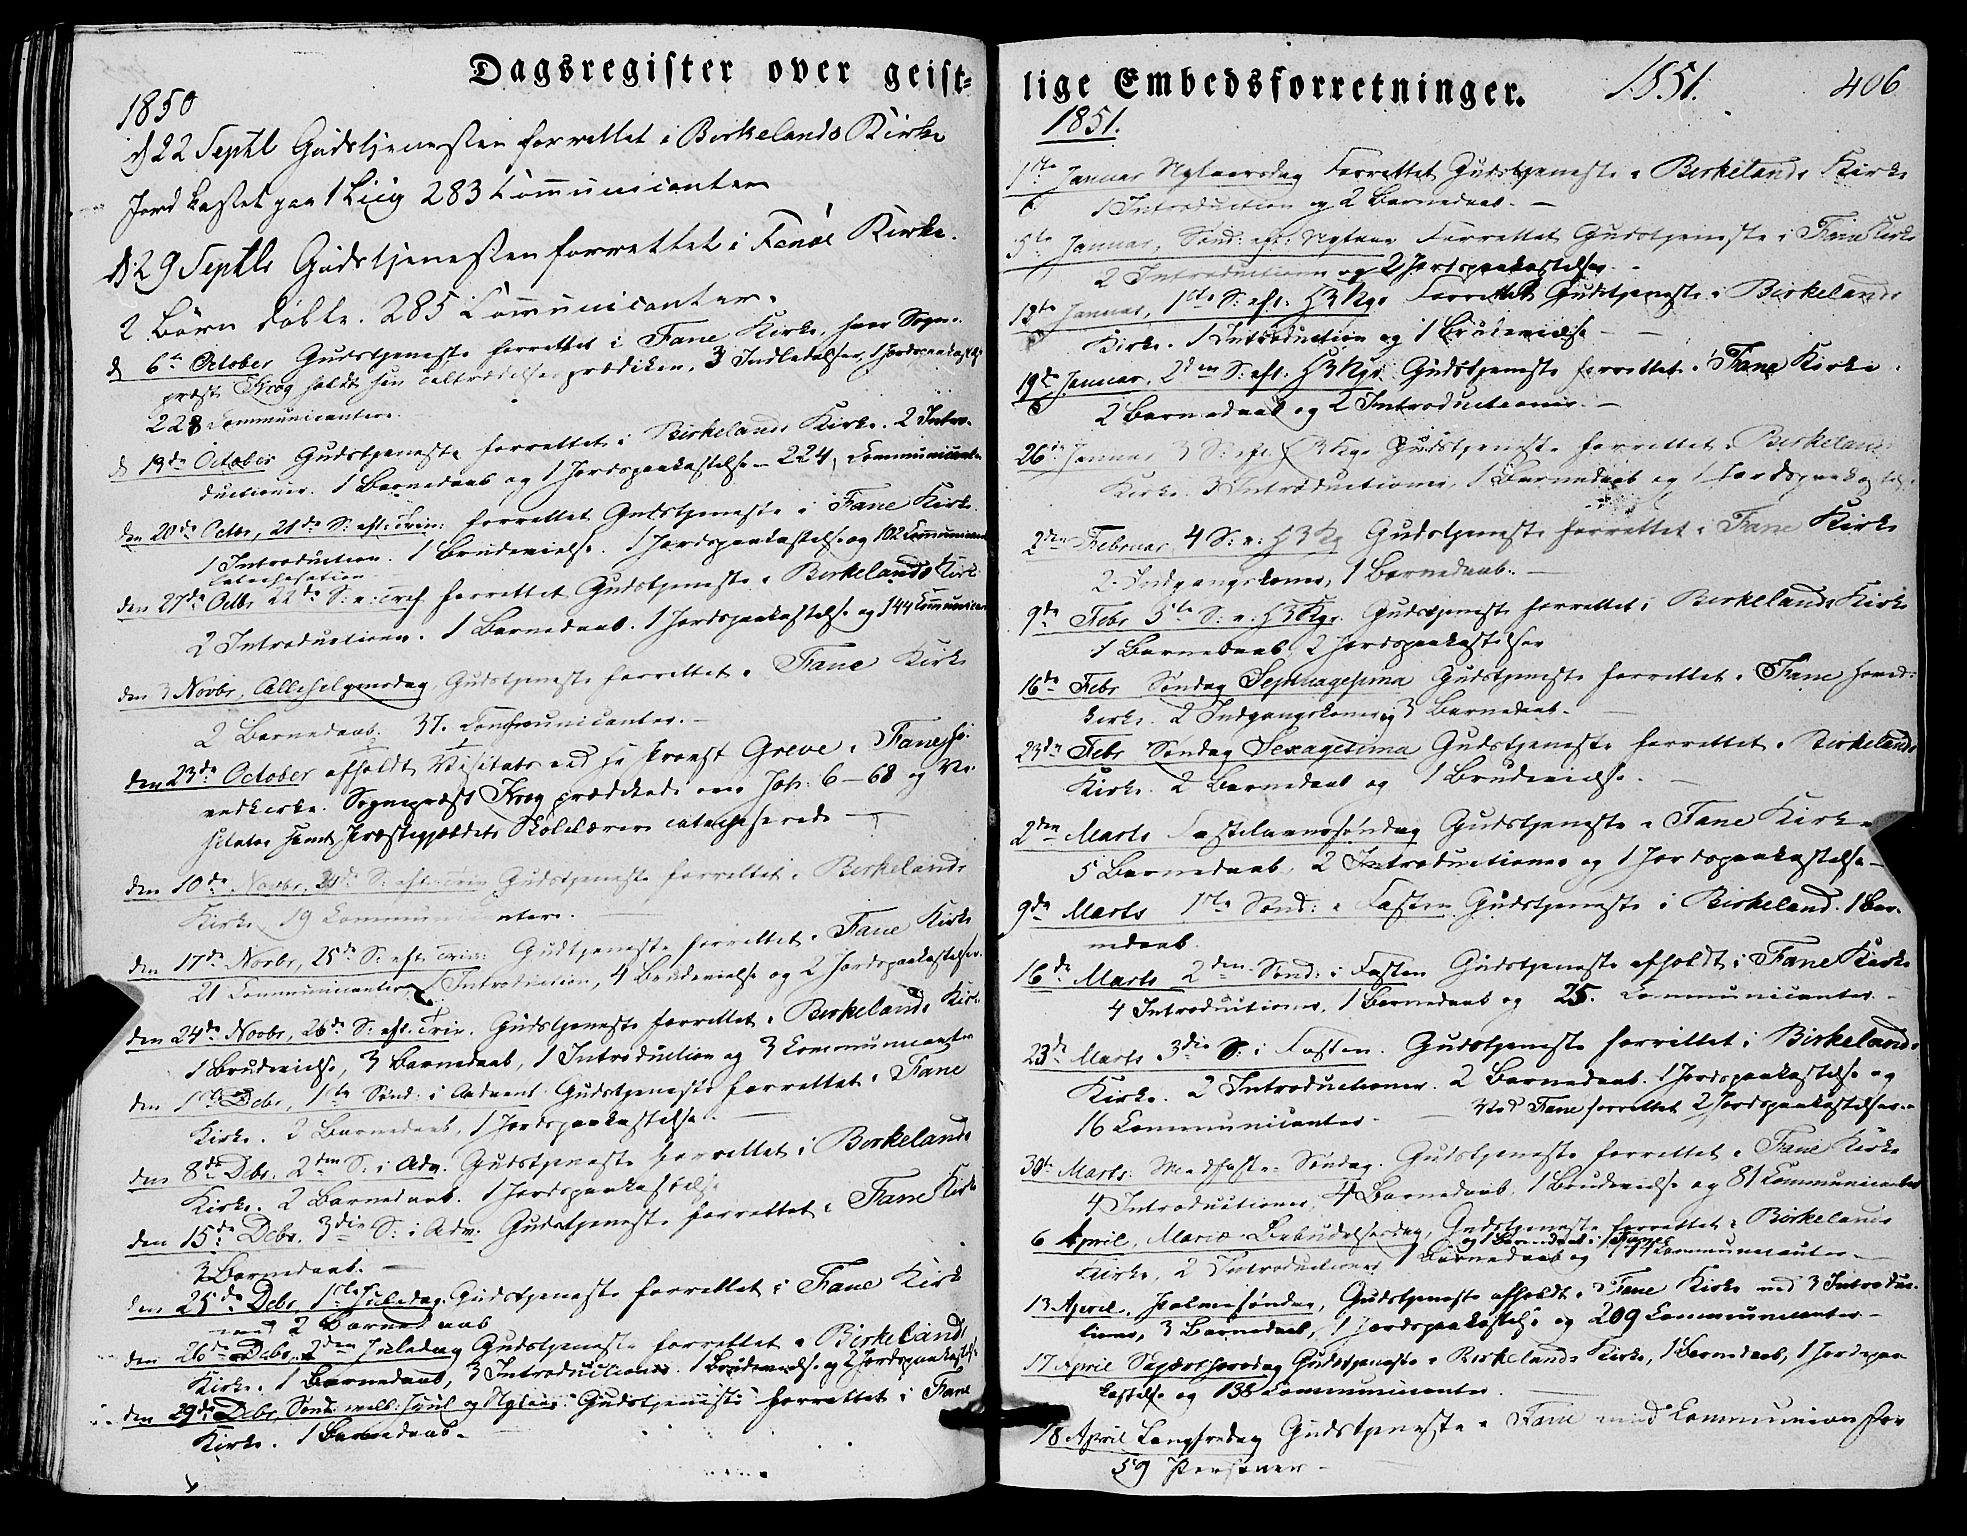 Dagsregister over geist-
1850
d 22 Septbr Gudstjenesten forrettet i Birkelands Kirke
Jord kastet paa 1 Liig 283 Communicanter
d 29 Septbr Gudstjenesten forrettet i Fanøe Kirke.
2 Børn døbte. 285 Communicanter.
d 6te October Gudstjeneste forrettet i Fane Kirke, hvor Sogne-
præst Krog holdt sin Tiltrædelsesprædiken, 3 Indledelser, 1 Jordspaakastelse
228 Communicanter.
d 13de October Gudstjeneste forrettet i Birkelands Kirke. 2 Intro-
ductioner. 1 Barnedaab og 1 Jordspaakastelse – 224 Communicanter
den 20de Octbr, 21de S: eft: Trin: forrettet Gudstjeneste i Fane Kirke
1 Introduction. 1 Brudevielse. 1 Jordspaakastelse og 102 Communicanter
Catechesation
den 27de Octbr 22de S: e: Tref. forrettet Gudstjeneste i Birkelands Kirke
2 Introductioner. 1 Barnedaab. 1 Jordspaakastelse og 144 Communicanter
den 3 Novbr, Allehelgensdag, Gudstjeneste forrettet i Fane Kirke
2 Barnedaab. 37. Communicanter. –
den 23de October afholdt Visitats ved Hr Provst Greve i Fane Ho-
vedkirke. Sognepræst Krog prædikede over Joh: 6 – 68 og Vi-
sitator samt Præstegjældets Skolelærere catechiserede –
den 10de Novbr, 24de S: eft: Trin Gudstjeneste forrettet i Birkelands
Kirke, 19 Communicantere.
den 17de Novbr, 25de S: eft Trin: Gudtjeneste forrettet i Fane Kirke
21 Communicanter, 1 Introduction, 4 Brudevielse og 2 Jordspaakastelser.
den 24de Novbr, 26de S: eft: Trin. Gudstjeneste forrettet i Birkelands Kirke
1 Brudevielse, 3 Barnedaab, 1 Introduction og 3 Communicanter
den 1ste Debr, 1ste Sønd: i Advent Gudstjeneste forrettet i Fane
Kirke. 2 Barnedaab, 1 Jordspaakastelse. –
den 8de Dbr, 2den S: i Adv. Gudstjeneste forrettet i Birkelands
Kirke. 2 Barnedaab. 1 Jordspaakastelse
den 15de Debr, 3die S: i Adv. Gudstjeneste forrettet i Fane Kirke
2 Barnedaab. –
den 25de Debr, 1ste Juledag. Gudstjeneste forrettet i Fane Kirke
med 2 Barnedaab
den 26de Debr, 2den Juledag Gudstjeneste forrettet i Birkelands
Kirke. 1 Barnedaab, 3 Introductioner. 1 Brudevielse og 2 Jordspaakastelse
den 29de Debr, Sønd: mell: Juul og Nytaar: Gudstjeneste forrettet i Fane
Kirke. 1 Barnedaab. –
lige Embedsforretninger.
1851.
406
1851.
1ste Januar Nytaarsdag Forrettet Gudstjeneste i Birkelands Kirke
1 Introduction og 2 Barnedaab. –
5te Januar, Sønd: eft: Nytaar Forrettet Gudstjeneste i Fane Kirke
2 Introductioner og 2 Jordspaakastelser. –
12te Januar, 1ste S: eft: H3Kgr Forrettet Gudstjeneste i Birkelands
Kirke. 1 Introduction og 1 Brudevielse –
19de Januar. 2den S: eft: H3Kgr. Gudstjeneste forrettet i Fane Kirke.
2 Barnedaab og 2 Introductioner. –
26de Januar 3 S: eft: H3Kgr Gudstjeneste forrettet i Birkelands
Kirke. 3 Introductioner, 1 Barnedaab og 1 Jordspaakastelse
2den Februar 4 S: e: H3Kg Gudstjeneste forrettet i Fane Kirke
2 Indgangskoner, 1 Barnedaab. –
9de Febr 5te S: e: H3Kgr. Gudstjeneste forrettet i Birkelands Kirke
1 Barnedaab, 2 Jordspaakastelser
16de Febr Søndag Septuagesima Gudstjeneste forrettet i Fane Hoved-
kirke. 2 Indgangskoner og 3 Barnedaab. –
23de Febr Søndag Sexagesima Gudstjeneste forrettet i Birkelands
Kirke. 2 Barnedaab og 1 Brudevielse. –
2den Marts Fastelavnssøndag Gudstjeneste i Fane Kirke
5 Barnedaab, 2 Introductioner og 1 Jordspaakastelse –
9de Marts 1ste Sønd: i Fasten Gudstjeneste i Birkeland. 1 Bar-
nedaab.
16de Marts 2den Sønd: i Fasten Gudstjeneste afholdt i Fane Kirke
4 Introductioner, 1 Barnedaab og 25. Communicanter. –
23de Marts 3die S: i Fasten. Gudstjeneste forrettet i Birkelands
Kirke. 2 Introductioner. 2 Barnedaab. 1 Jordspaakastelse og
16 Communicanter. – Ved Fane forrettet 2 Jordspaakastelser. –
30te Marts: Midfaste-Søndag. Gudstjeneste forrettet i Fane Kirke
4 Introductioner, 4 Barnedaab, 1 Brudevielse og 81 Communicanter
6 April, Mariæ Bebudelsesdag, Gudstjeneste forrettet i Birkelands
og 1 Barnedaab i Fane
Kirke, 2 Introductioner 1 Barnedaab og Communicanter –
13 April. Palmesøndag, Gudstjeneste afholdt i Fane Kirke med 3 Introduc-
tioner, 3 Barnedaab, 1 Jordspaakastelse og 209 Communicanter –
17 April Skjærthorsdag Gudstjeneste i Birkelands Kirke, 1 Barnedaab, 1 Jordspaa-
kastelse og 138 Communicanter. –
18 April Langfredag Gudstjeneste i Fane med Communion for
59 Personer –